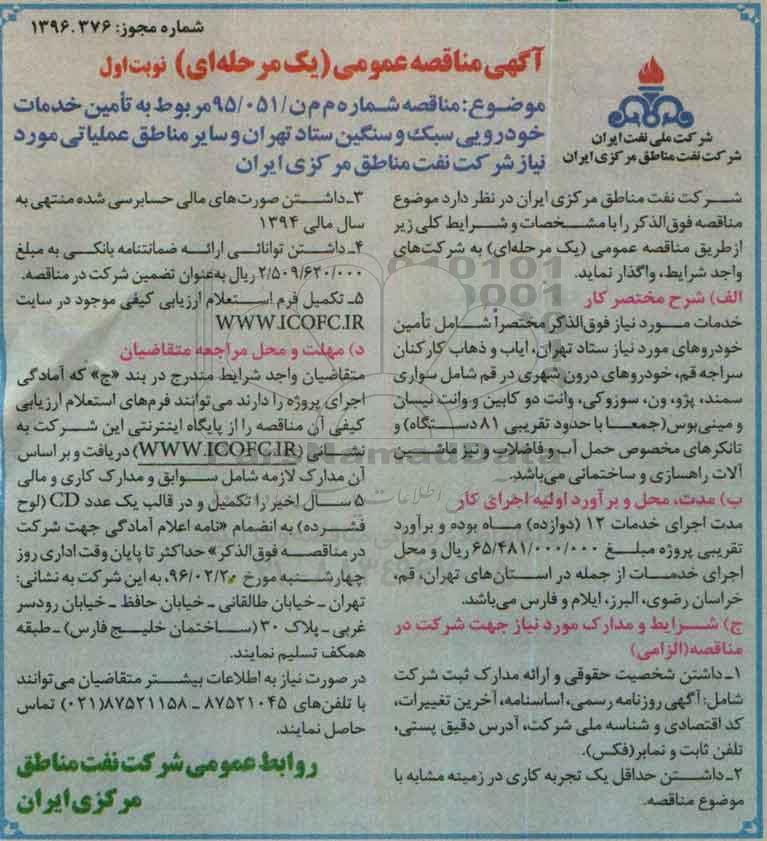 شماره مجوز: ۱۳۹۶.۳۷۶
آگهی مناقصه عمومی (یک مرحله‌ای) نوبت اول
شرکت ملی نفت ایران
شرکت نفت مناطق مرکزی ایران
موضوع: مناقصه شماره م م ن/۹۵/۰۵۱ مربوط به تأمین خدمات
خودرویی سبک و سنگین ستاد تهران و سایر مناطق عملیاتی مورد
نیاز شرکت نفت مناطق مرکزی ایران
شرکت نفت مناطق مرکزی ایران در نظر دارد موضوع
مناقصه فوق‌الذکر را با مشخصات و شرایط کلی زیر
از طریق مناقصه عمومی (یک مرحله‌ای) به شرکت‌های
واجد شرایط، واگذار نماید.
الف) شرح مختصر کار
خدمات مورد نیاز فوق‌الذکر مختصراً شامل تأمین
خودروهای مورد نیاز ستاد تهران، ایاب و ذهاب کارکنان
سراجه قم، خودروهای درون شهری در قم شامل سواری
سمند، پژو، ون، سوزوکی، وانت دو کابین و وانت نیسان
و مینی‌بوس (جمعا با حدود تقریبی ۸۱ دستگاه) و
تانکرهای مخصوص حمل آب و فاضلاب و نیز ماشین
آلات راهسازی و ساختمانی می‌باشد.
ب) مدت، محل و برآورد اولیه اجرای کار
مدت اجرای خدمات ۱۲ (دوازده) ماه بوده و برآورد
تقریبی پروژه مبلغ ۶۵/۴۸۱/۰۰۰/۰۰۰ ریال و محل
اجرای خدمات از جمله در استان‌های تهران، قم،
خراسان رضوی، البرز، ایلام و فارس می‌باشد.
ج) شرایط و مدارک مورد نیاز جهت شرکت در
مناقصه(الزامی)
۱ـ داشتن شخصیت حقوقی و ارائه مدارک ثبت شرکت
شامل: آگهی روزنامه رسمی، اساسنامه، آخرین تغییرات،
کد اقتصادی و شناسه ملی شرکت، آدرس دقیق پستی،
تلفن ثابت و نمابر(فکس).
۲ـ داشتن حداقل یک تجربه کاری در زمینه مشابه با
موضوع مناقصه.
۳ـ داشتن صورت‌های مالی حسابرسی شده منتهی به
سال مالی ۱۳۹۴
۴ـ داشتن توانائی ارائه ضمانتنامه بانکی به مبلغ
۲/۵۰۹/۶۲۰/۰۰۰ ریال به‌عنوان تضمین شرکت در مناقصه.
۵ـ تکمیل فرم استعلام ارزیابی کیفی موجود در سایت
WWW.ICOFC.IR
د) مهلت و محل مراجعه متقاضیان
متقاضیان واجد شرایط مندرج در بند «ج» که آمادگی
اجرای پروژه را دارند می‌توانند فرم‌های استعلام ارزیابی
کیفی آن مناقصه را از پایگاه اینترنتی این شرکت به
نشانی (WWW.ICOFC.IR) دریافت و بر اساس
آن مدارک لازمه شامل سوابق و مدارک کاری و مالی
۵ سال اخیر را تکمیل و در قالب یک عدد CD (لوح
فشرده) به انضمام «نامه اعلام آمادگی جهت شرکت
در مناقصه فوق‌الذکر» حداکثر تا پایان وقت اداری روز
چهارشنبه مورخ ۹۶/۰۲/۲۰، به این شرکت به نشانی:
تهران ـ خیابان طالقانی ـ خیابان حافظ ـ خیابان رودسر
غربی ـ پلاک ۳۰ (ساختمان خلیج فارس) ـ طبقه
همکف تسلیم نمایند.
در صورت نیاز به اطلاعات بیشتر متقاضیان می‌توانند
با تلفن‌های ۸۷۵۲۱۰۴۵ ـ ۸۷۵۲۱۱۵۸(۰۲۱) تماس
حاصل نمایند.
روابط عمومی شرکت نفت مناطق
مرکزی ایران